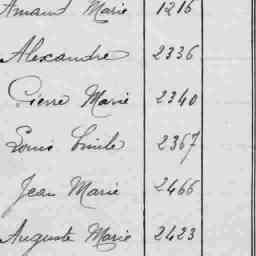 Amand Marie 1216
Alexandre 2336
Pierre Marie 2340
Louis Emile 2367
Jean Marie 2466
Auguste Marie 2423